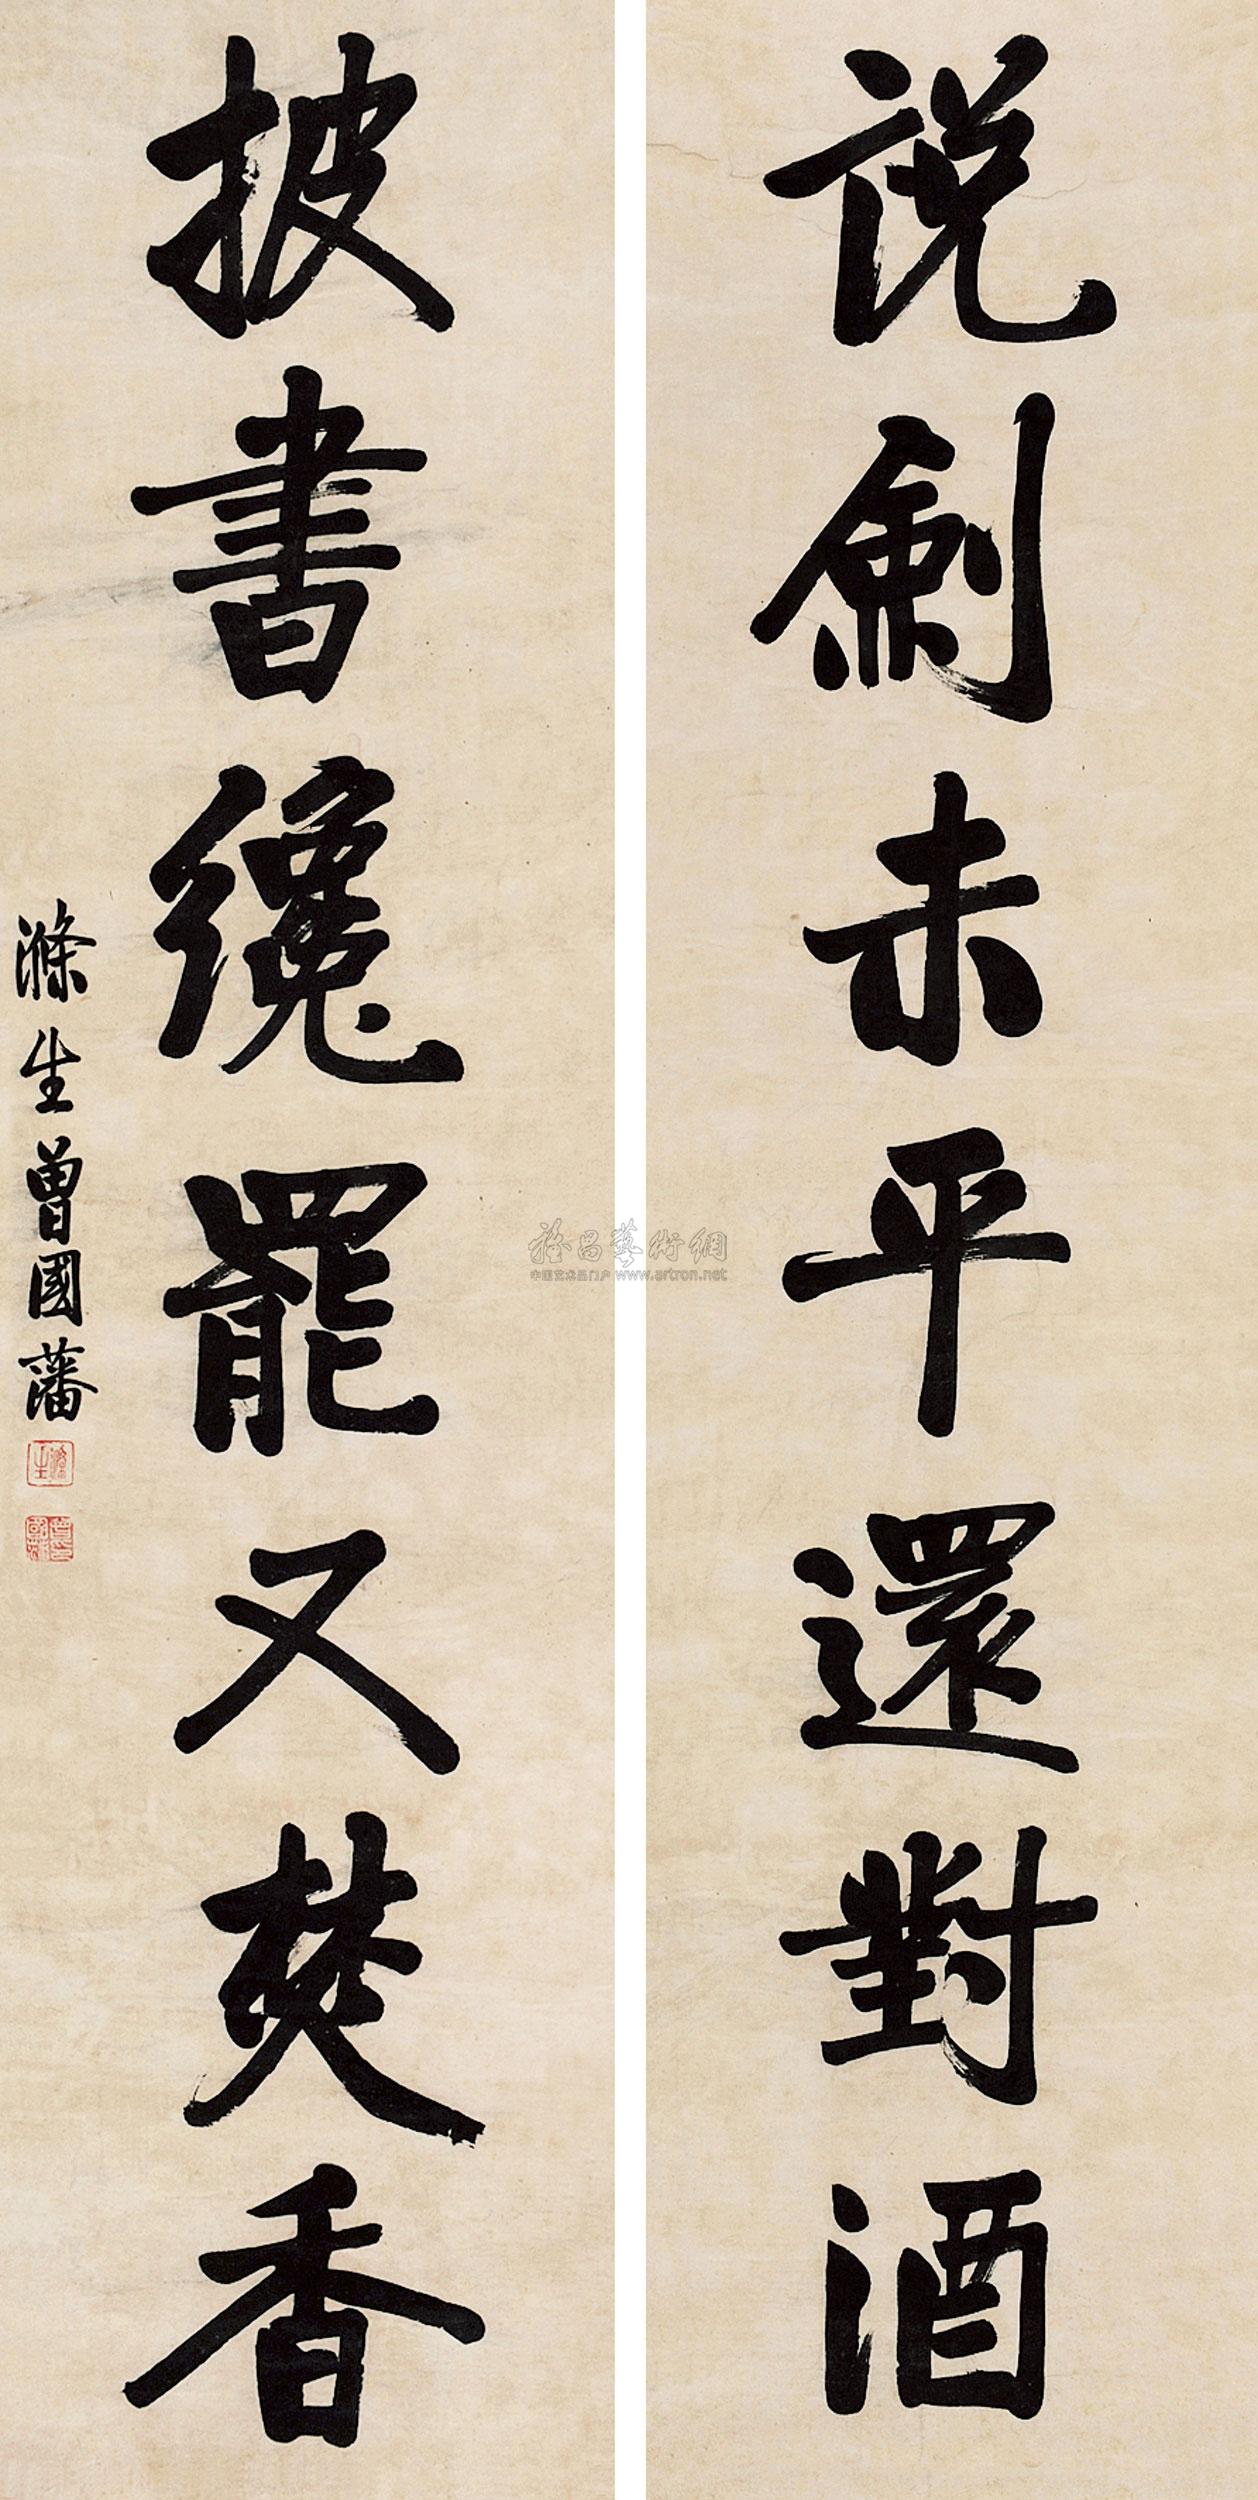 説劍未平還對酒
披書纔罷又焚香
滌生曾國藩
雅昌藝術網
中国艺术品门户 www.artron.net